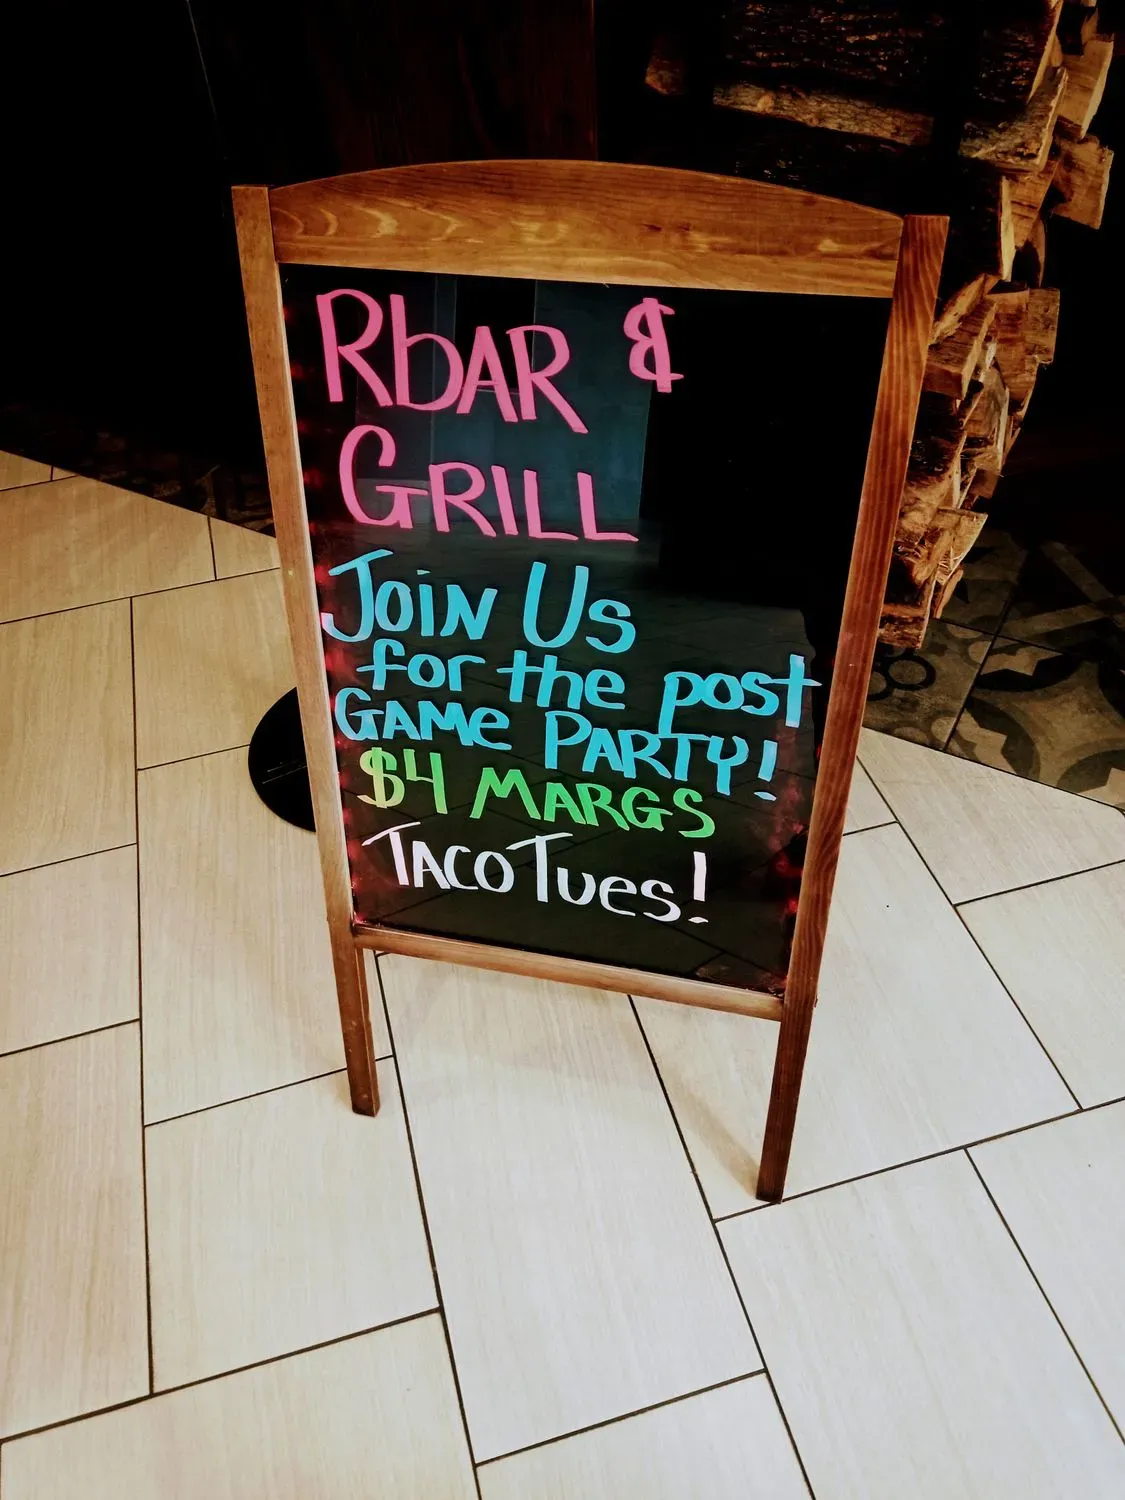 RbAR &
GRILL
JOIN US
for the post
GAME PARTY!
$4 MARGS
TACO TUES!